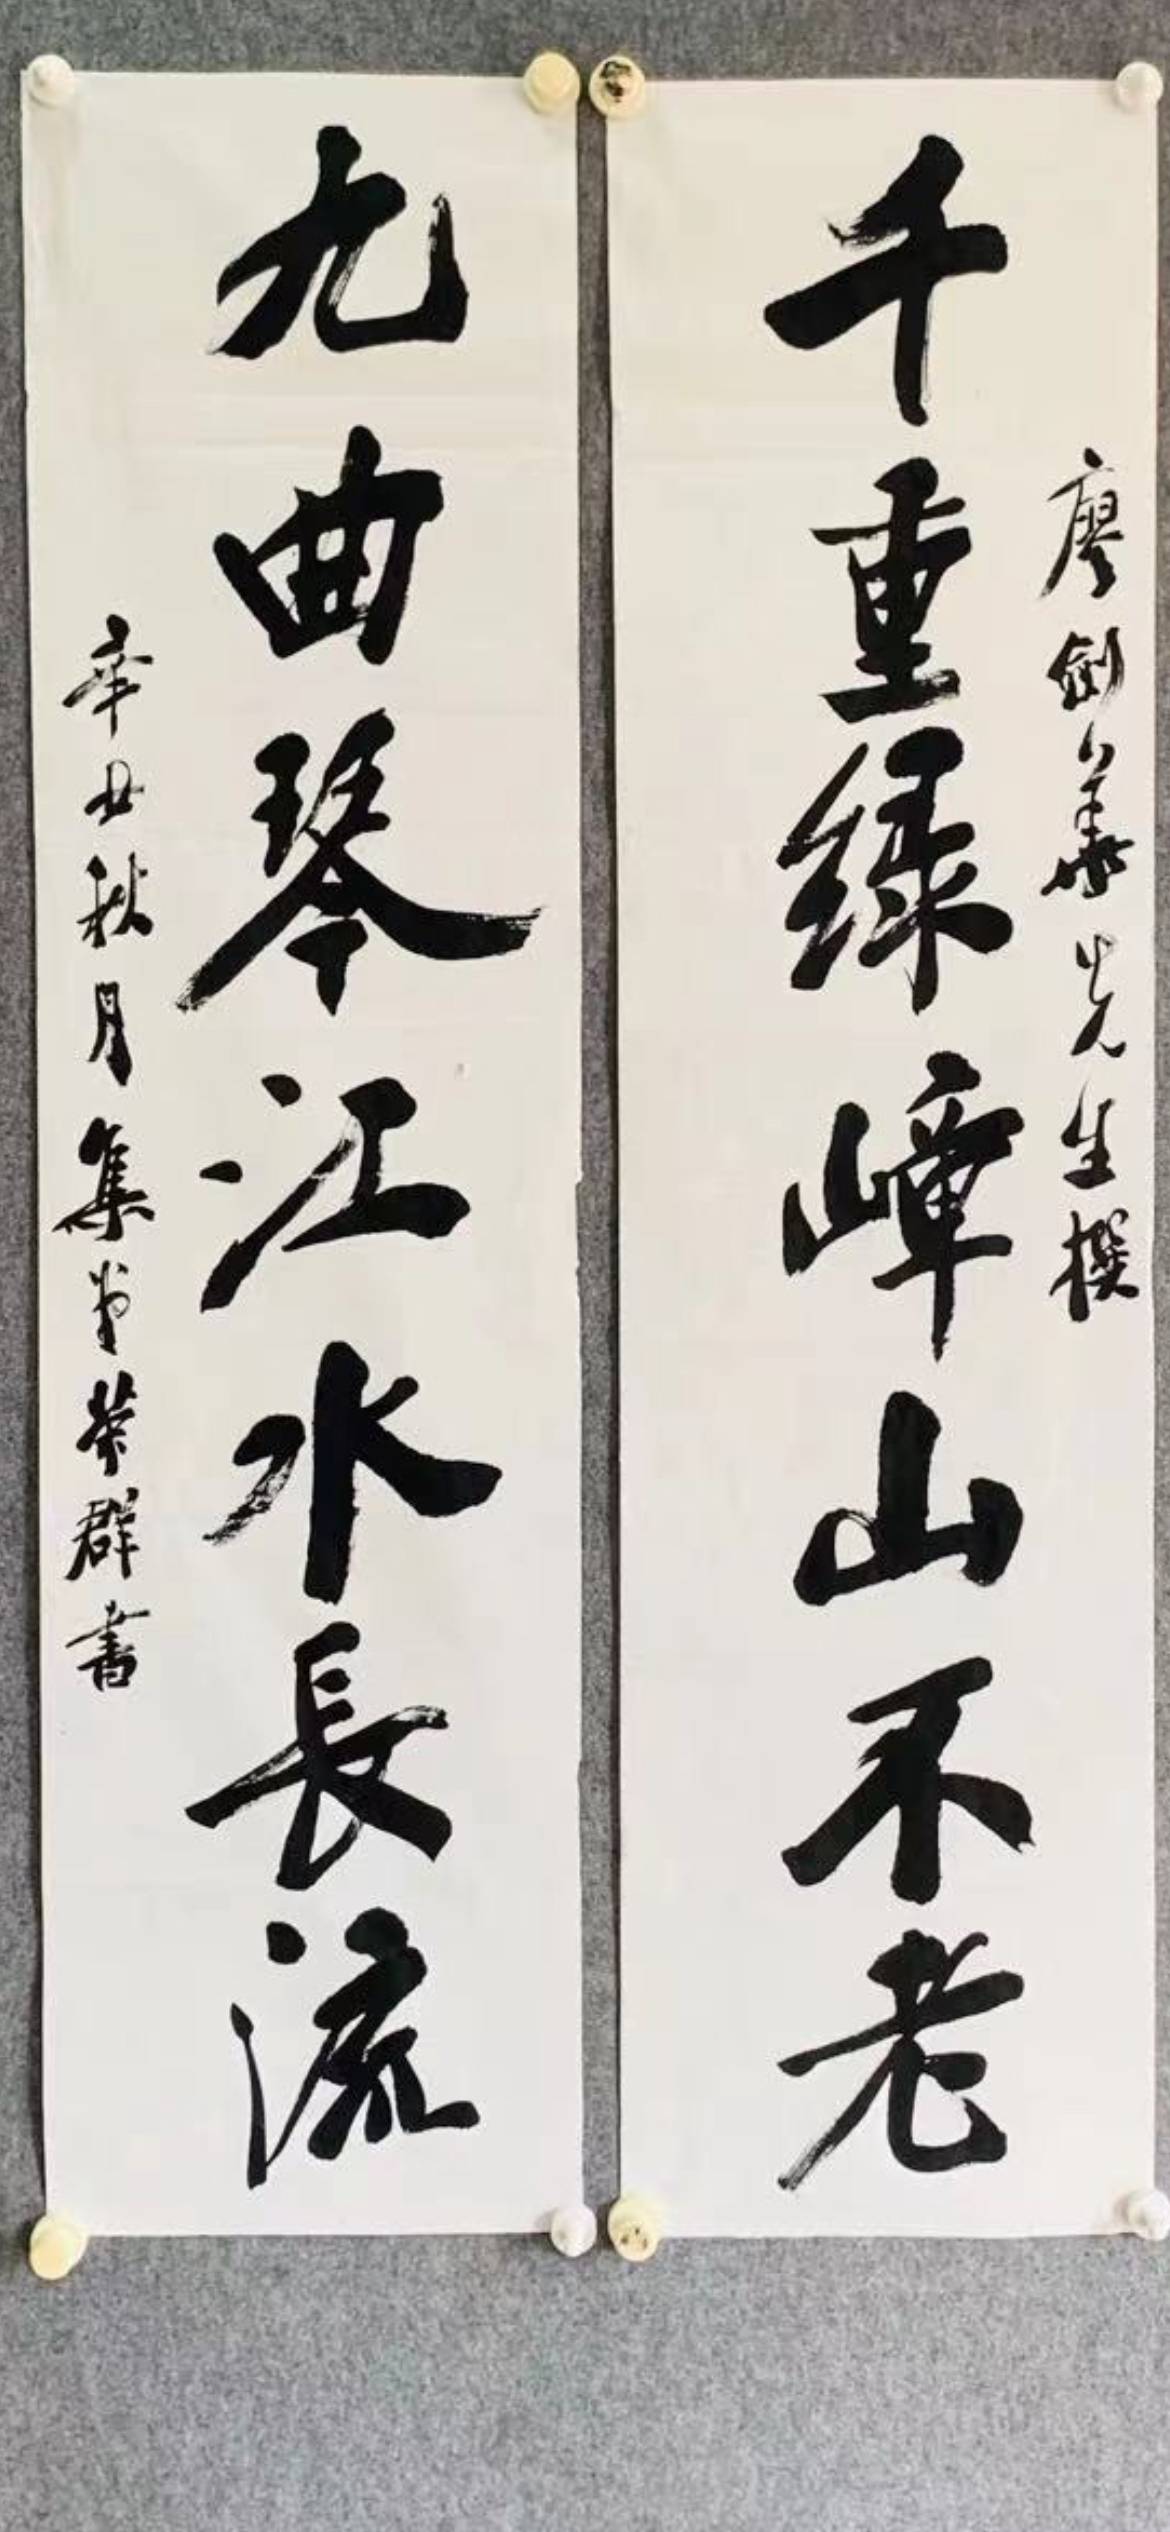 廖劍華先生撰
千重绿嶂山不老
九曲琴江水長流
辛丑秋月集米芾群書